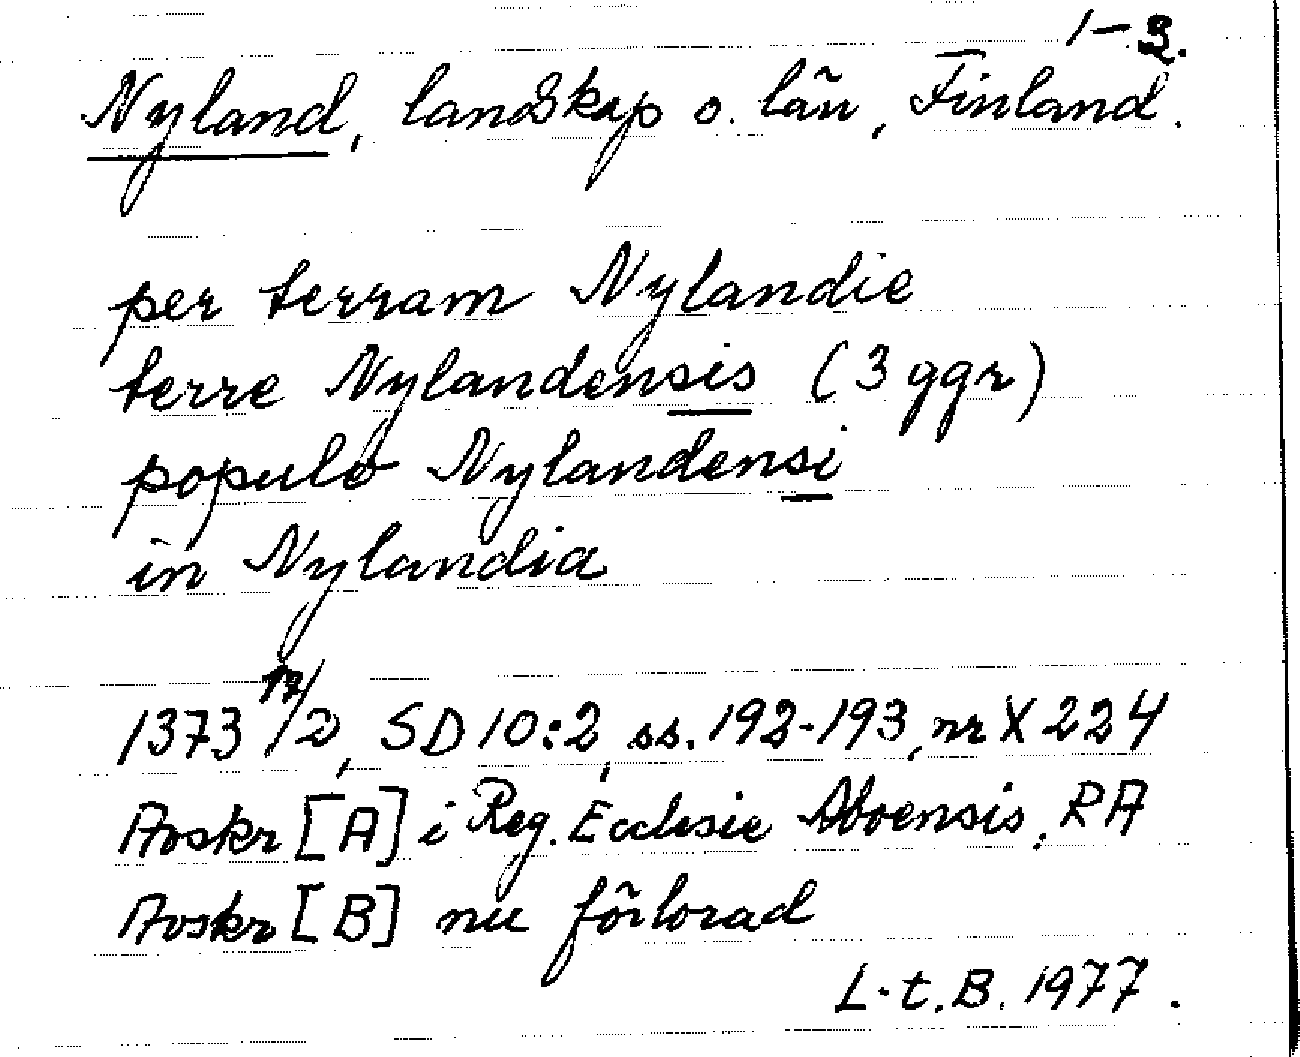 1-3.
Nyland, landskap o. län, Finland.
per terram Nylandie
terre Nylandensis (3 ggr)
populo Nylandensi
in Nylandia
1373 17/2, SD 10:2, ss. 192-193, nr X 224
Avskr [A] i Reg. Ecclesie Aboensis, RA
Avskr [B] nu förlorad
L.t.B. 1977.